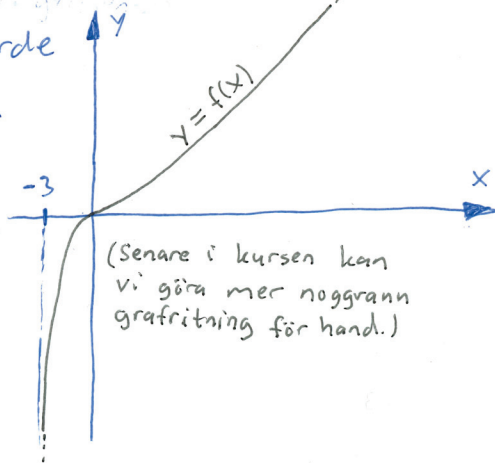 rde
y
y = f(x)
-3
x
(Senare i kursen kan
vi göra mer noggrann
grafritning för hand.)